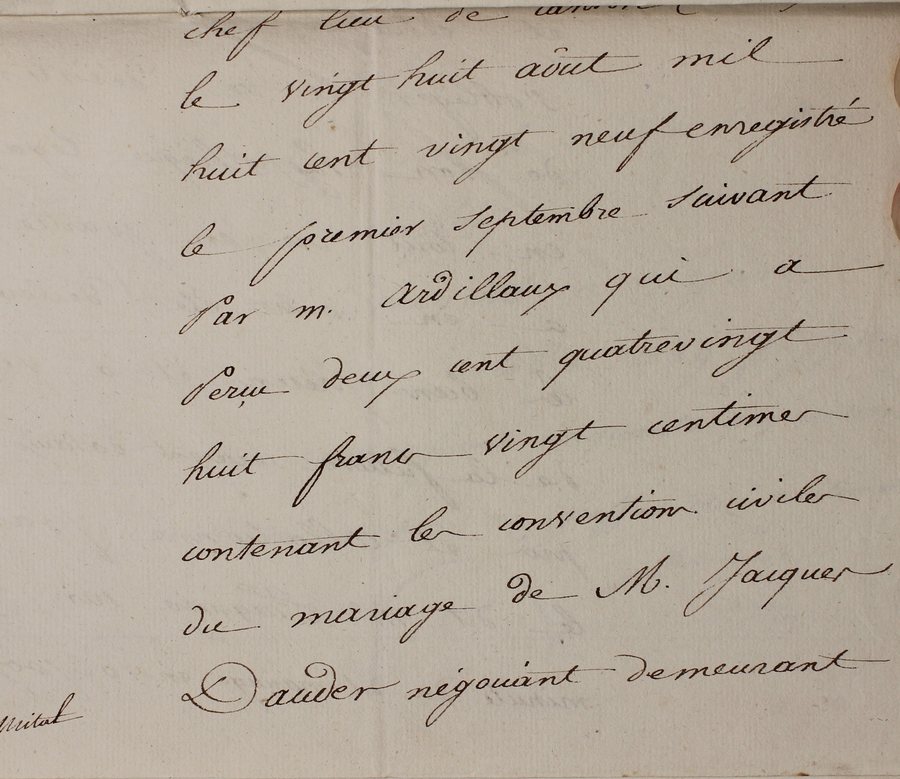 chef lieu de canton
le vingt huit aôut mil
huit cent vingt neuf enregistré
le premier septembre suivant
Par m. Ardillaux qui a
Perçu deux cent quatrevingt
huit francs vingt centimes
contenant les conventions civiles
du mariage de M. Jacques
Dauder négociant demeurant